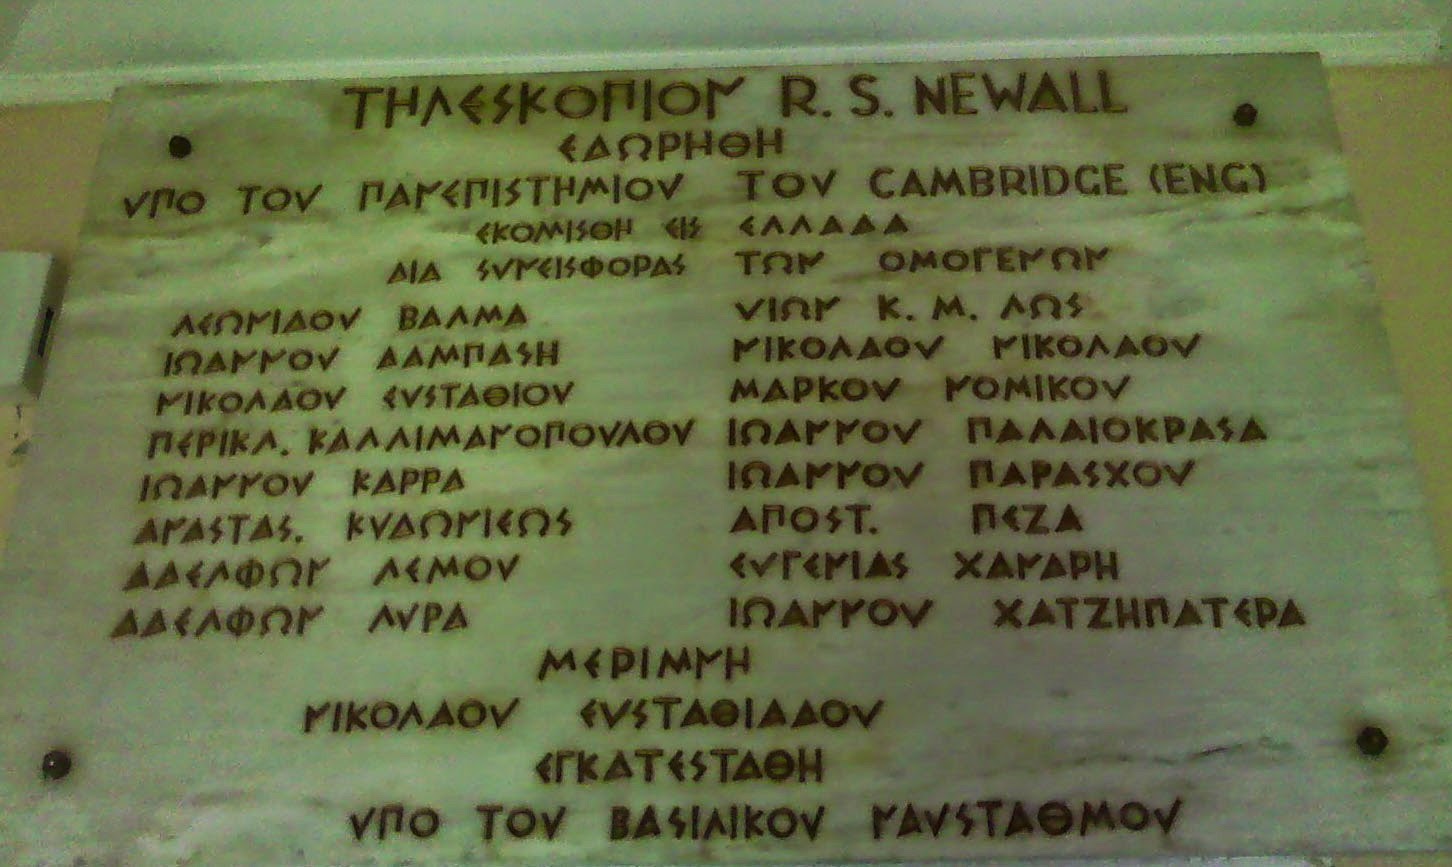 ΤΗΛΕΣΚΟΠΙΟΝ R. S. NEWALL
ΕΔΩΡΗΘΗ
ΥΠΟ ΤΟΥ ΠΑΝΕΠΙΣΤΗΜΙΟΥ ΤΟΥ CAMBRIDGE (ENG)
ΕΚΟΜΙΣΘΗ ΕΙΣ ΕΛΛΑΔΑ
ΔΙΑ ΣΥΝΕΙΣΦΟΡΑΣ ΤΩΝ ΟΜΟΓΕΝΩΝ
ΛΕΩΝΙΔΟΥ ΒΑΛΜΑ ΥΙΩΝ Κ. Μ. ΛΩΣ
ΙΩΑΝΝΟΥ ΔΑΜΠΑΣΗ ΝΙΚΟΛΑΟΥ ΝΙΚΟΛΑΟΥ
ΝΙΚΟΛΑΟΥ ΕΥΣΤΑΘΙΟΥ ΜΑΡΚΟΥ ΝΟΜΙΚΟΥ
ΠΕΡΙΚΛ. ΚΑΛΛΙΜΑΝΟΠΟΥΛΟΥ ΙΩΑΝΝΟΥ ΠΑΛΑΙΟΚΡΑΣΑ
ΙΩΑΝΝΟΥ ΚΑΡΡΑ ΙΩΑΝΝΟΥ ΠΑΡΑΣΧΟΥ
ΑΝΑΣΤΑΣ. ΚΥΔΩΝΙΕΩΣ ΑΠΟΣΤ. ΠΕΖΑ
ΑΔΕΛΦΩΝ ΛΕΜΟΥ ΕΥΓΕΝΙΑΣ ΧΑΝΔΡΗ
ΑΔΕΛΦΩΝ ΛΥΡΑ ΙΩΑΝΝΟΥ ΧΑΤΖΗΠΑΤΕΡΑ
ΜΕΡΙΜΝΗ
ΝΙΚΟΛΑΟΥ ΕΥΣΤΑΘΙΑΔΟΥ
ΕΓΚΑΤΕΣΤΑΘΗ
ΥΠΟ ΤΟΥ ΒΑΣΙΛΙΚΟΥ ΝΑΥΣΤΑΘΜΟΥ